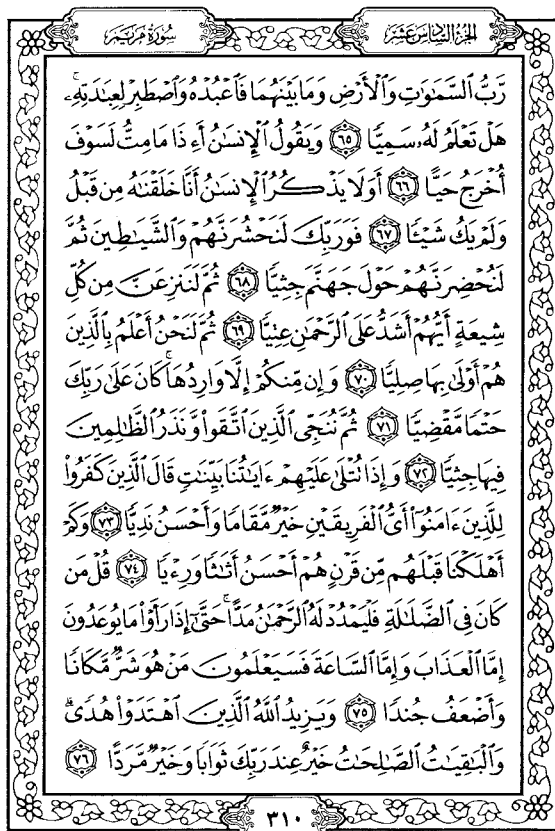 سُورَةُ مَرْيَم
الجُزْءُ السَّادِسَ عَشَر
رَّبُّ ٱلسَّمَٰوَٰتِ وَٱلْأَرْضِ وَمَا بَيْنَهُمَا فَٱعْبُدْهُ وَٱصْطَبِرْ لِعِبَٰدَتِهِۦۚ
هَلْ تَعْلَمُ لَهُۥ سَمِيًّا ٦٥ وَيَقُولُ ٱلْإِنسَٰنُ أَءِذَا مَا مِتُّ لَسَوْفَ
أُخْرَجُ حَيًّا ٦٦ أَوَلَا يَذْكُرُ ٱلْإِنسَٰنُ أَنَّا خَلَقْنَٰهُ مِن قَبْلُ
وَلَمْ يَكُ شَيْـًٔا ٦٧ فَوَرَبِّكَ لَنَحْشُرَنَّهُمْ وَٱلشَّيَٰطِينَ ثُمَّ
لَنُحْضِرَنَّهُمْ حَوْلَ جَهَنَّمَ جِثِيًّا ٦٨ ثُمَّ لَنَنزِعَنَّ مِن كُلِّ
شِيعَةٍ أَيُّهُمْ أَشَدُّ عَلَى ٱلرَّحْمَٰنِ عِتِيًّا ٦٩ ثُمَّ لَنَحْنُ أَعْلَمُ بِٱلَّذِينَ
هُمْ أَوْلَىٰ بِهَا صِلِيًّا ٧٠ وَإِن مِّنكُمْ إِلَّا وَارِدُهَاۚ كَانَ عَلَىٰ رَبِّكَ
حَتْمًا مَّقْضِيًّا ٧١ ثُمَّ نُنَجِّى ٱلَّذِينَ ٱتَّقَوا۟ وَّنَذَرُ ٱلظَّٰلِمِينَ
فِيهَا جِثِيًّا ٧٢ وَإِذَا تُتْلَىٰ عَلَيْهِمْ ءَايَٰتُنَا بَيِّنَٰتٍ قَالَ ٱلَّذِينَ كَفَرُوا۟
لِلَّذِينَ ءَامَنُوٓا۟ أَىُّ ٱلْفَرِيقَيْنِ خَيْرٌ مَّقَامًا وَأَحْسَنُ نَدِيًّا ٧٣ وَكَمْ
أَهْلَكْنَا قَبْلَهُم مِّن قَرْنٍ هُمْ أَحْسَنُ أَثَٰثًا وَرِءْيًا ٧٤ قُلْ مَن
كَانَ فِى ٱلضَّلَٰلَةِ فَلْيَمْدُدْ لَهُ ٱلرَّحْمَٰنُ مَدًّاۚ حَتَّىٰٓ إِذَا رَأَوْا۟ مَا يُوعَدُونَ
إِمَّا ٱلْعَذَابَ وَإِمَّا ٱلسَّاعَةَ فَسَيَعْلَمُونَ مَنْ هُوَ شَرٌّ مَّكَانًا
وَأَضْعَفُ جُندًا ٧٥ وَيَزِيدُ ٱللَّهُ ٱلَّذِينَ ٱهْتَدَوْا۟ هُدًىۗ
وَٱلْبَٰقِيَٰتُ ٱلصَّٰلِحَٰتُ خَيْرٌ عِندَ رَبِّكَ ثَوَابًا وَخَيْرٌ مَّرَدًّا ٧٦
٣١٠